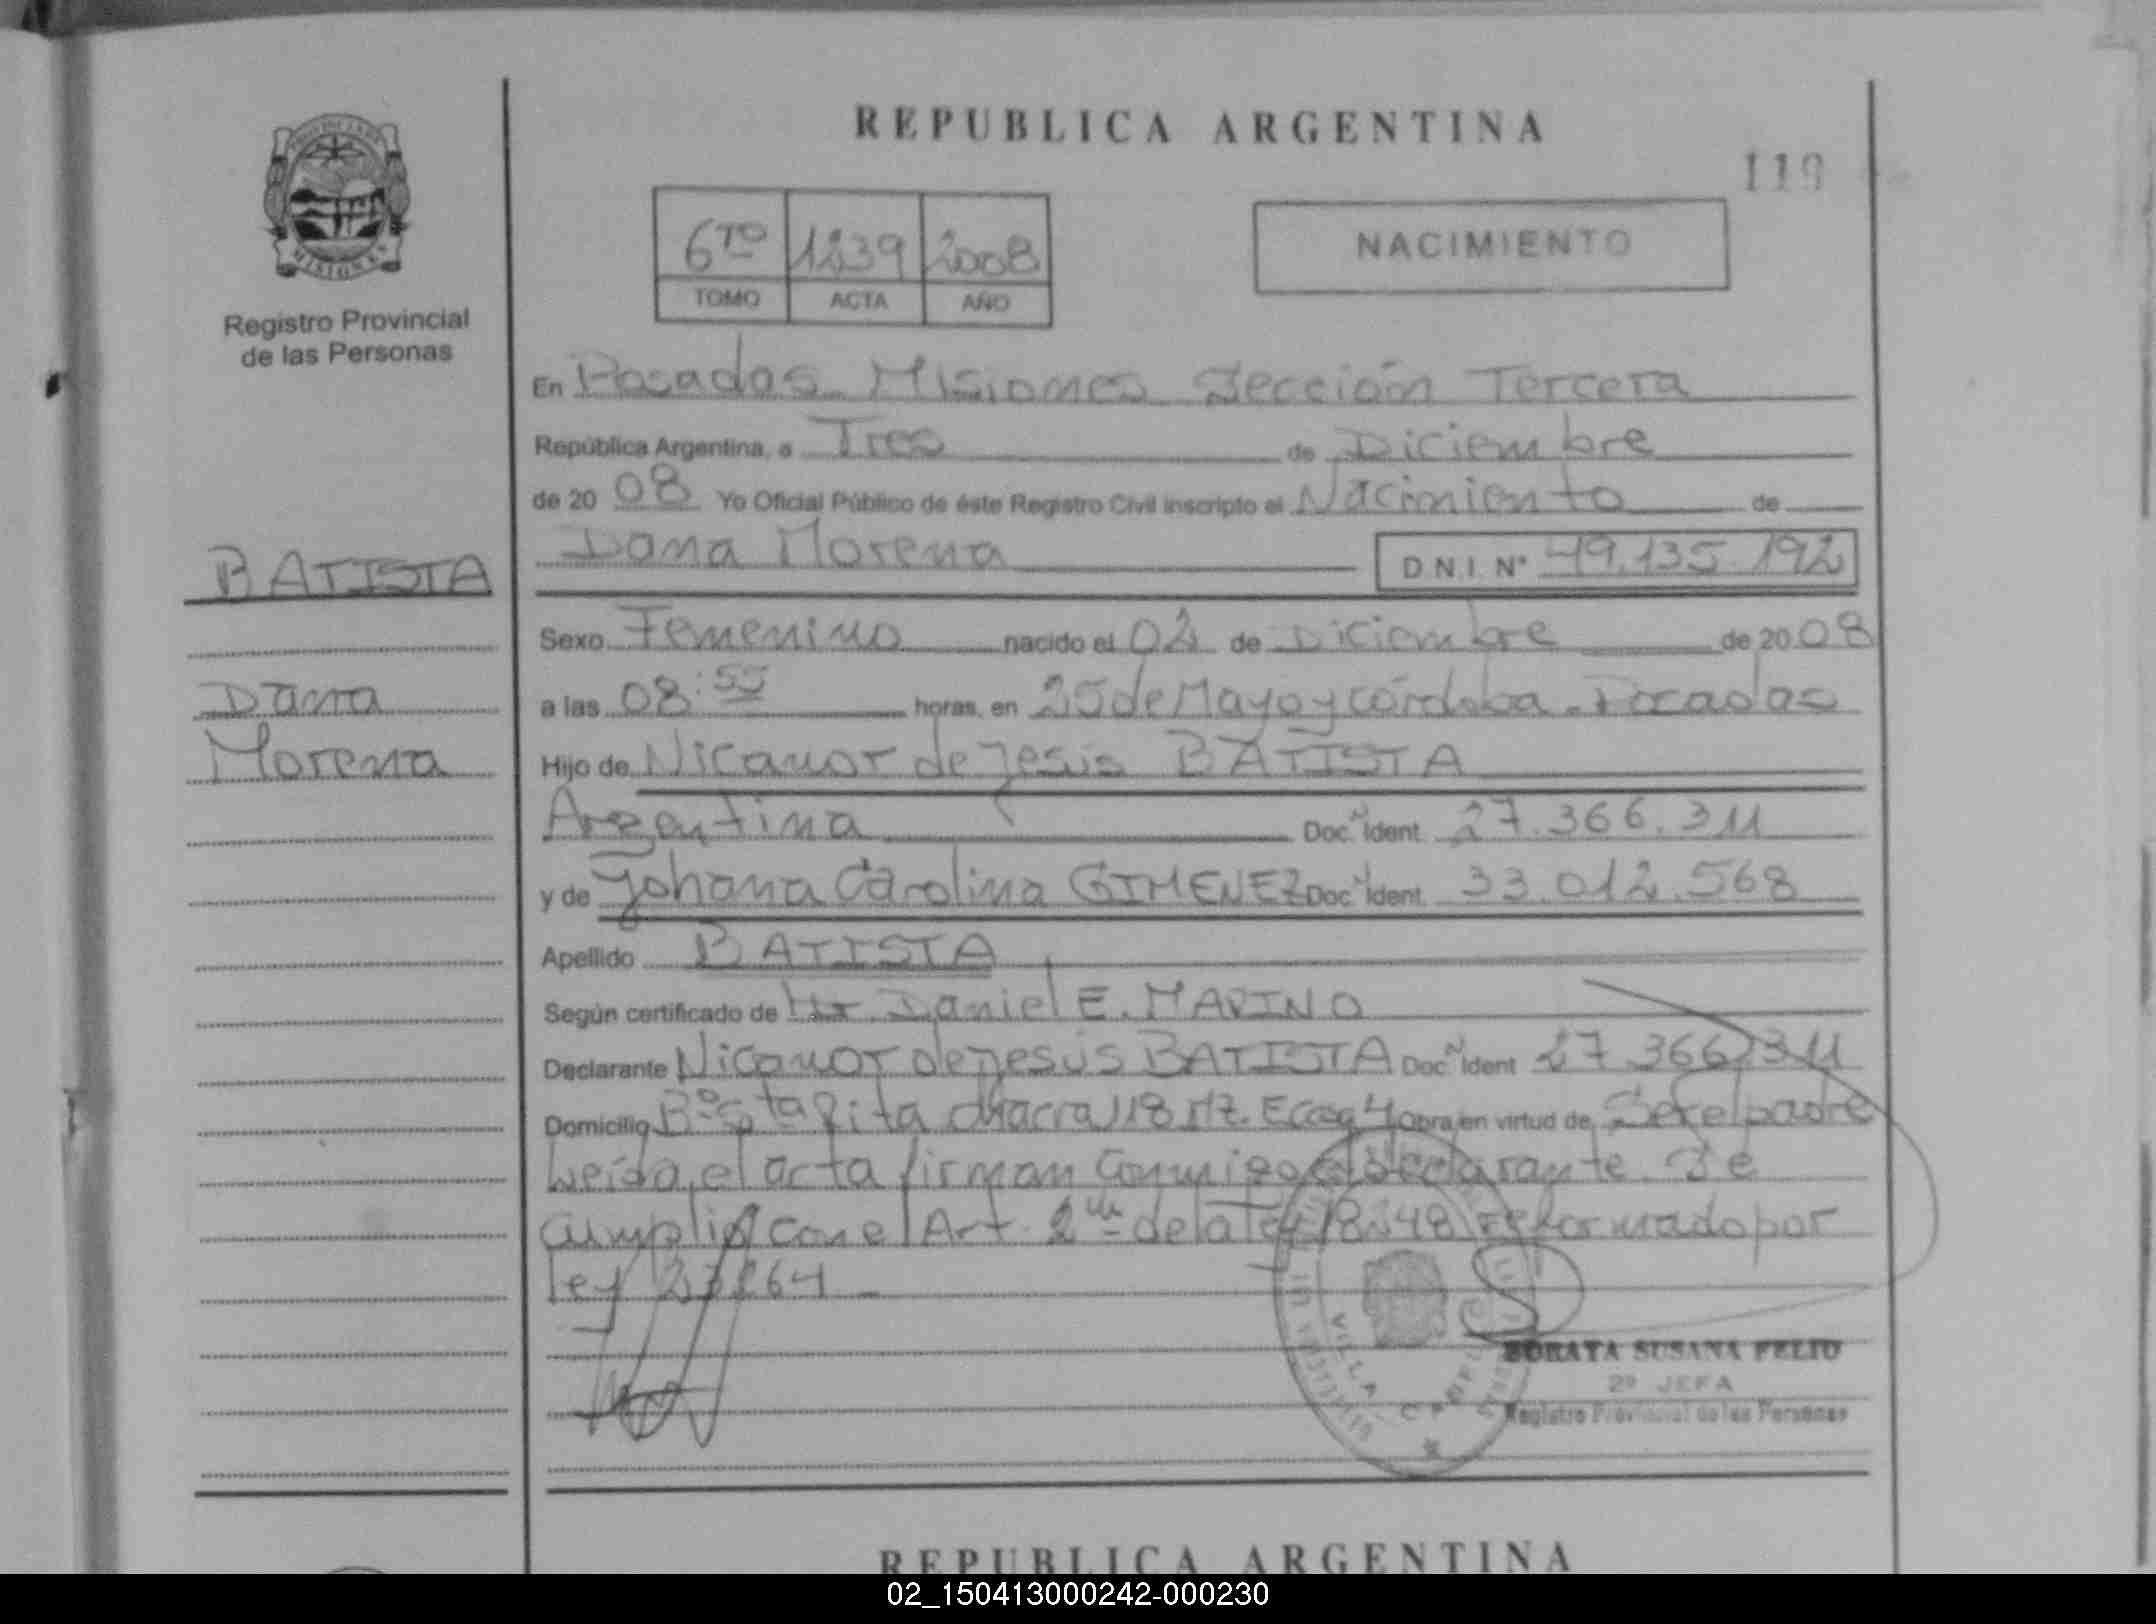 REPUBLICA ARGENTINA
119
6TO 1239 2008
TOMO ACTA AÑO
NACIMIENTO
MISIONES
Registro Provincial
de las Personas
En Posadas Misiones Sección Tercera
República Argentina, a Tres de Diciembre
de 2008 Yo Oficial Público de éste Registro Civil inscripto el Nacimiento de
Dana Morena D.N.I. N° 49.135.192
BATISTA
Dana
Morena
Sexo Femenino nacido el 02 de Diciembre de 2008
a las 08:55 horas, en 25 de Mayo y córdoba - Posadas
Hijo de Nicanor de Jesús BATISTA
Argentina Doc. Ident. 27.366.311
y de Johana Carolina GIMENEZ Doc. Ident. 33.012.568
Apellido BATISTA
Según certificado de Daniel E. MARINO
Declarante Nicanor de Jesús BATISTA Doc. Ident 27.366.311
Domicilio B° Sta Rita chacra 118 Mz. E casa 4 Obra en virtud de Ser el padre
Leída el acta firman conmigo el declarante. Se
cumplió con el Art. de la ley 18248 reformado por
ley 23264
VILLA CABELLO
SUSANA FELIU
2º JEFA
Registro Provincial de las Personas
REPUBLICA ARGENTINA
02_150413000242-000230